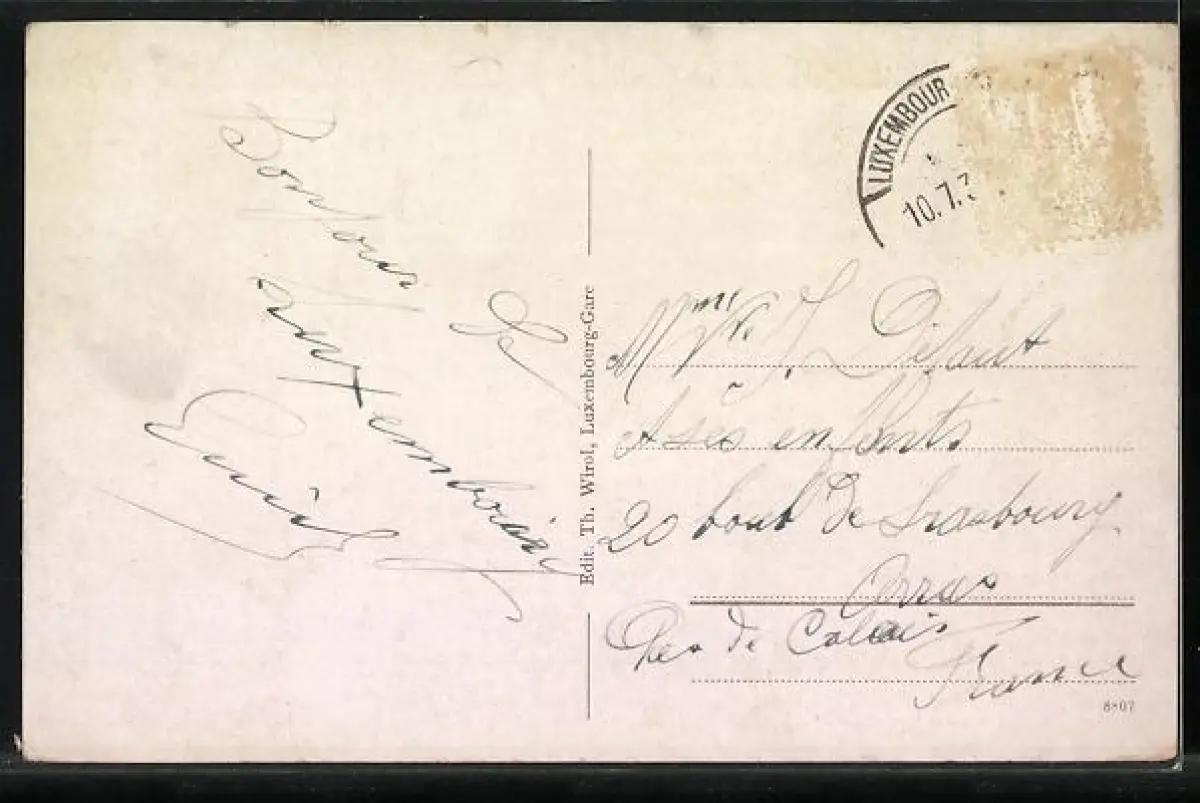 Bonjour
de
Luxembourg
Edit. Th. Wirol, Luxembourg-Gare
LUXEMBOUR
10.7.3
Mme Vve J.
& ses enfants
20 boul de Strasbourg
Arras
Pas de Calais
France
8-07